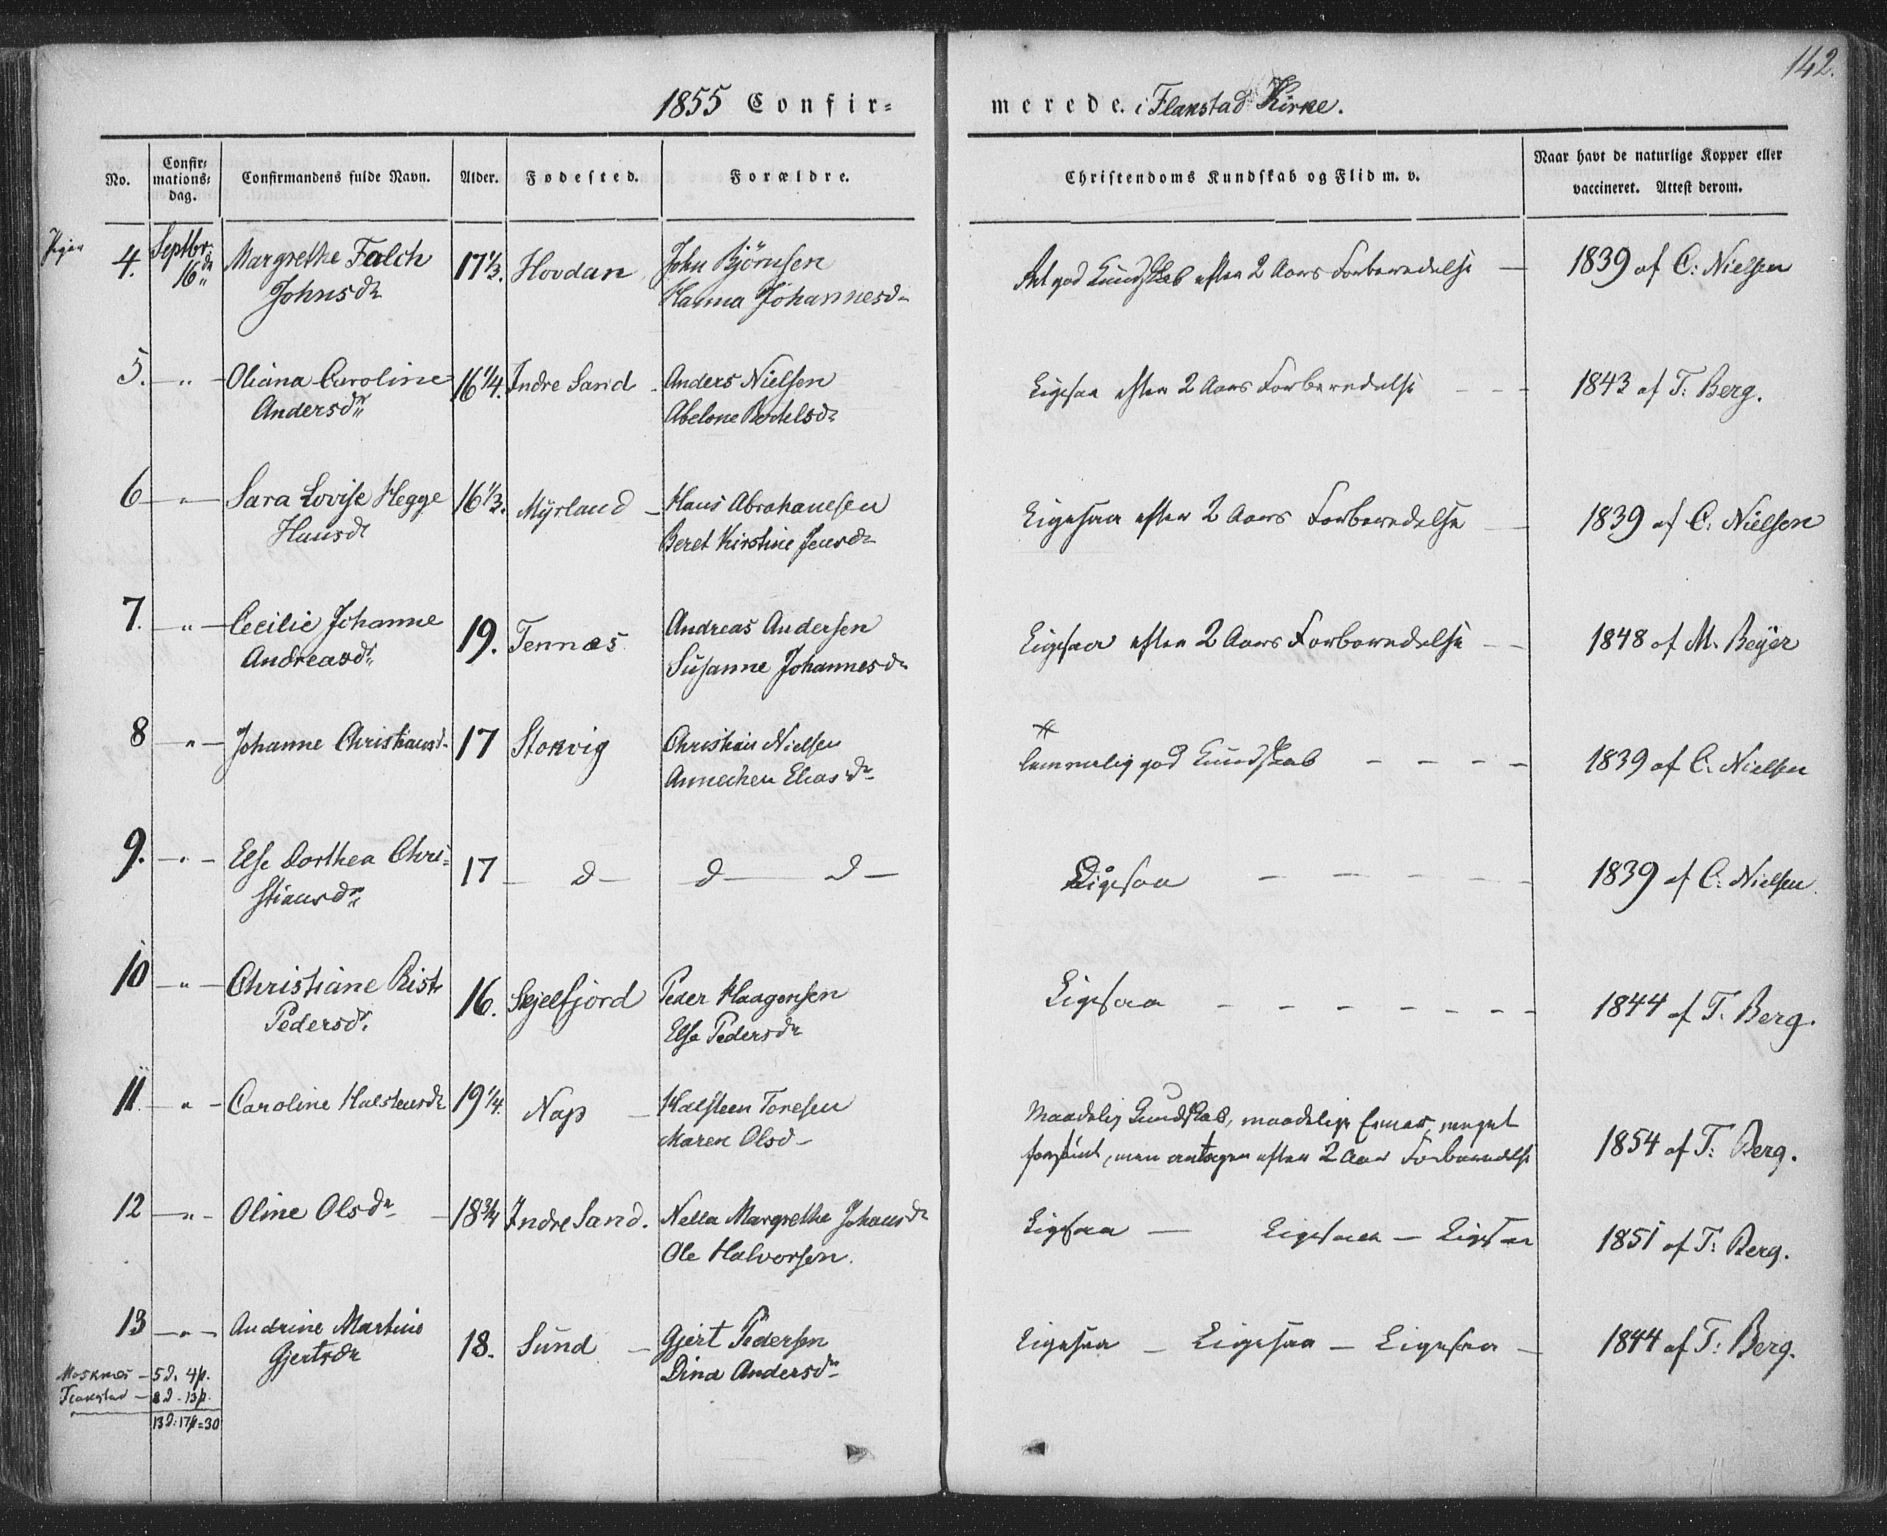 142.
1855 Confir=
merede. i Flakstad Kirke.
No.
Confir=
mations=
dag.
Confirmandens fulde Navn.
Alder.
Fødested.
Forældre.
Christendoms Kundskab og Flid m. v.
Naar havt de naturlige Kopper eller
vaccineret. Attest derom.
Piger
4. Septbr. 16de Margrethe Falch 17 1/3. Hovdan John Björnsen god Kundskab efter 2 Aars Forberedelse — 1839 af C: Nielsen
Johnsdr Hanna Johannesdr
5. — " — Oliana Caroline 16 1/4. Indre Sand Anders Nielsen Ligesaa efter 2 Aars Forberedelse — — 1843 af T: Berg.
Andersdr Abelone Bertelsdr
6 — " — Sara Lovise Hegge 16 1/3. Myrland — Hans Abrahamsen Ligesaa efter 2 Aars Forberedelse — 1839 af C. Nielsen
Hansdr Beret Kirstine Jensdr
7. — " — Cecilie Johanne 19. Tennæs Andreas Andersen Ligesaa efter 2 Aars Forberedelse — — 1848 af M. Beyer
Andreasdr Susanne Johannesdr
8 — " — Johanne Christiansd. 17 Stokvig Christian Nielsen temmelig god Kundskab — — — — 1839 af C. Nielsen
Annechen Eliasdr
9. — " — Else Dorthea Chri= 17 — d — d — d — Ligesaa — — — — 1839 af C. Nielsen
stiansdr
10 — " — Christiane Rist 16. Skjelfjord Peder Haagensen Ligesaa — — — — — — 1844 af T. Berg.
Pedersdr. Else Pedersdr
11 — " — Caroline Halstensdr 19 1/4. Nap — Halsteen Toresen Maadelig Kundskab, maadelige Evner, meget
Maren Olsd — forsømt, men antagen efter 2 Aars Forberedelse 1854 af T: Berg.
12 — " — Oline Olsdr — 18 3/4 Indre Sand. Nella Margrethe Johansdr Ligesaa — Ligesaa — Ligesaa 1851 af T: Berg.
Ole Halvorsen.
13 — " — Andrine Martine 18. Sund — Gjert Pedersen Ligesaa — Ligesaa — Ligesaa — 1844 af T: Berg.
Gjertsdr Dina Andersdr
Mosknes — 5 d. 4 p.
Flakstad — 8 d. 13 p.
13 d: 17 p = 30